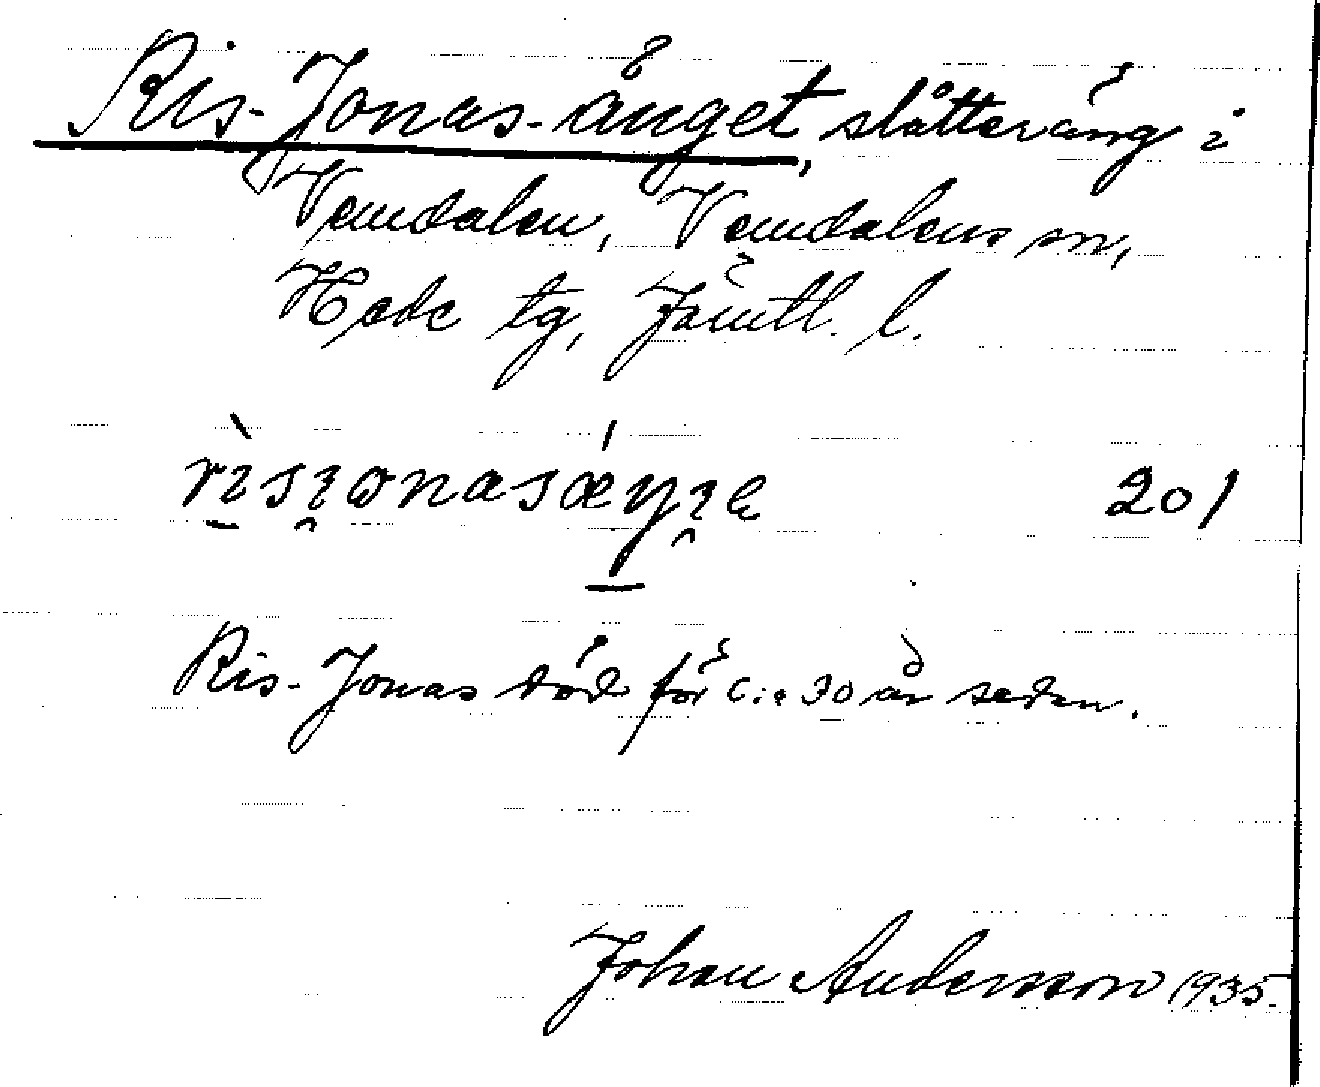 Ris-Jonas-änget, slåtteräng i
Vemdalen, Vemdalens sn,
Hede tg, Jämtl. l.
201
Ris-Jonas död för c:a 30 år sedan.
Johan Andersson 1935.